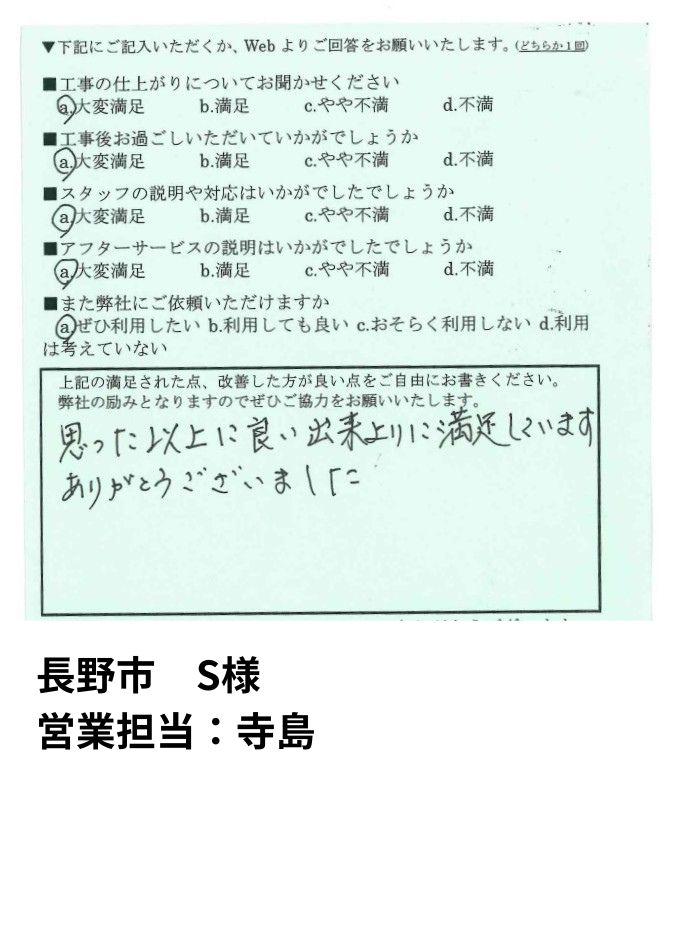 ▼下記にご記入いただくか、Web よりご回答をお願いいたします。(どちらか1回)
■工事の仕上がりについてお聞かせください
a.大変満足 b.満足 c.やや不満 d.不満
■工事後お過ごしいただいていかがでしょうか
a.大変満足 b.満足 c.やや不満 d.不満
■スタッフの説明や対応はいかがでしたでしょうか
a.大変満足 b.満足 c.やや不満 d.不満
■アフターサービスの説明はいかがでしたでしょうか
a.大変満足 b.満足 c.やや不満 d.不満
■また弊社にご依頼いただけますか
a.ぜひ利用したい b.利用しても良い c.おそらく利用しない d.利用
は考えていない
上記の満足された点、改善した方が良い点をご自由にお書きください。
弊社の励みとなりますのでぜひご協力をお願いいたします。
思った以上に良い出来上りに満足しています
ありがとうございました
長野市 S様
営業担当：寺島